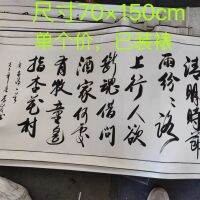 尺寸70x150cm
单个价，已装裱
清明時節
雨纷々路
上行人欲
断魂借问
酒家何處
有牧童遥
指杏花村